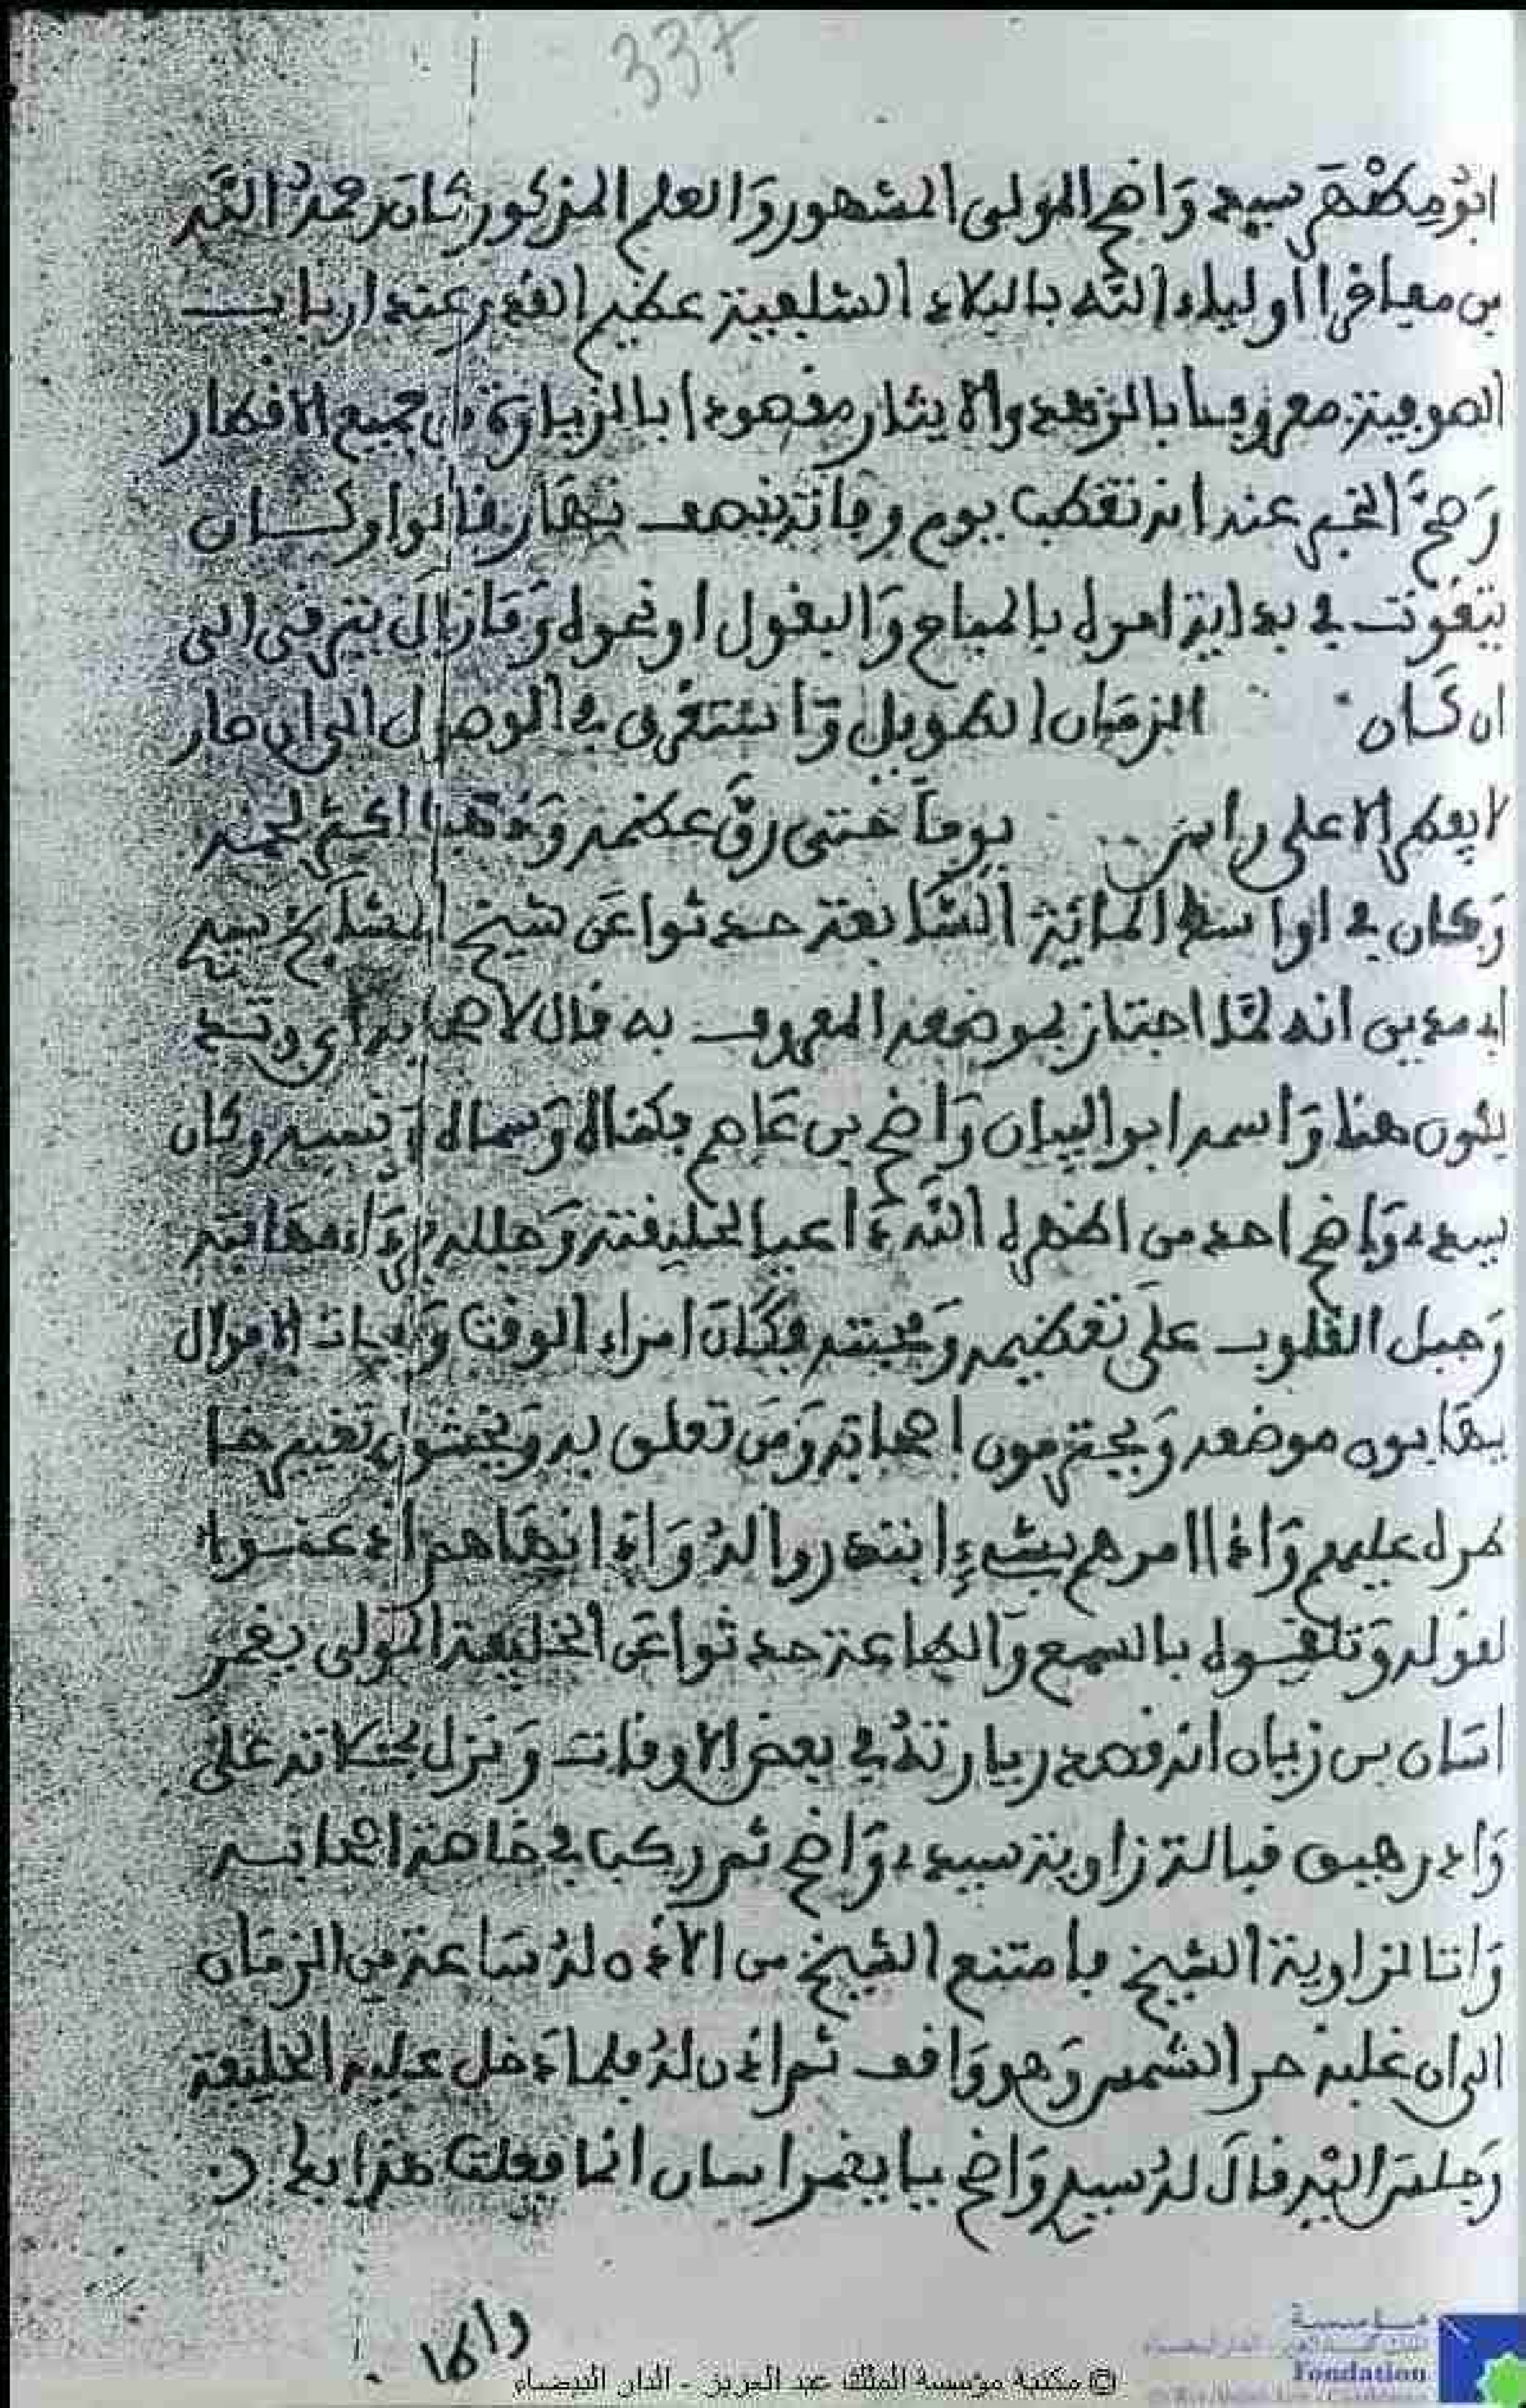 337
ابو مطهر سيدي واضح المولى المشهور والعلم المذكور كان رحمه الله
من معاخر اوليلء الله بالبلاد الشلفية عظيم القدر عند ارباب
الصوفية معروفا بالزهد والايثار مقصودا بالزيارة من جميع الافطار
رصح الخبر عند انه تقطب يوم وفاته نصف نهار فالوا وكان
يتقوت في بداية امره بالمباح والبقول او نحوه وما زال يترقى الى
ان كان الزمان الطويل وتا ستغرق في الوصول الى ان صار
لا يفطر الا على راس يوما حتى رق عظمه وذهب اكثر لحمه
وكان في اواسط المائة السابعة حدثوا عن شيخ المشايخ سيدي
ابي مدين انه لما اجتاز بموضعه المعروف به قال لاصحابه اي وتد
يكون هنا واسمه ابو البيان واضح بن عاصم بكناه وسماه ونسبه وكان
سيدي واضح احد من اظهره الله داعيا لخليفته وجلله برداء مهابته
وجبل القلوب على تعظيمه ومحبته فكان امراء الوقت الاموال
يهابون موضعه ويحترمون اصحابه ومن تعلق به ويخشون تغيير خا
طره عليهم واذا امرهم بشيء ابتدروا له واذا نهاهم اذعنوا
لقوله وتلقوه بالسمع والطاعة حدثوا عن الخليفة المولى يغمر
اسان بن زيان انه قصد زيارته في بعض الاوقات ونزل بمحلاته على
واد رهيو قبالة زاوية سيدي واضح ثم ركب في خاصة اصحابه
واتا لزاوية الشيخ فامتنع الشيخ من الاذن له ساعة من الزمان
الى ان غلبه حر الشمس وهو واقف ثم اذن له فلما دخل عليه الخليفة
وجلس اليه قال له سيدي واضح يا يغمراسان انما فعلت هذا بك
© مكتبة مؤسسة الملك عبد العزيز - الدار البيضاء
Fondation